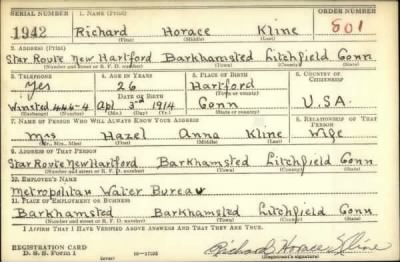 SERIAL NUMBER 1. NAME (Print) ORDER NUMBER
1942 Richard Horace Kline 801
(First) (Middle) (Last)
2. ADDRESS (Print)
Star Route New Hartford Barkhamsted Litchfield Conn
(Number and street or R. F. D. number) (Town) (County) (State)
3. TELEPHONE 4. AGE IN YEARS 5. PLACE OF BIRTH 6. COUNTRY OF CITIZENSHIP
Yes 26 Hartford
DATE OF BIRTH (Town or county)
Winsted 444-4 Apl 3rd 1914 Conn U.S.A.
(Mo.) (Day) (Yr.) (State or country)
7. NAME OF PERSON WHO WILL ALWAYS KNOW YOUR ADDRESS 8. RELATIONSHIP OF THAT PERSON
Mrs Hazel Anna Kline Wife
(Mr., Mrs., Miss) (First) (Middle) (Last)
9. ADDRESS OF THAT PERSON
Star Route New Hartford Barkhamsted Litchfield Conn
(Number and street or R. F. D. number) (Town) (County) (State)
10. EMPLOYER'S NAME
Metropolitan Water Bureau
11. PLACE OF EMPLOYMENT OR BUSINESS
Barkhamsted Barkhamsted Litchfield Conn
(Number and street or R. F. D. number) (Town) (County) (State)
I AFFIRM THAT I HAVE VERIFIED ABOVE ANSWERS AND THAT THEY ARE TRUE.
REGISTRATION CARD
D. S. S. Form 1 Richard Horace Kline
(Registrant's signature)